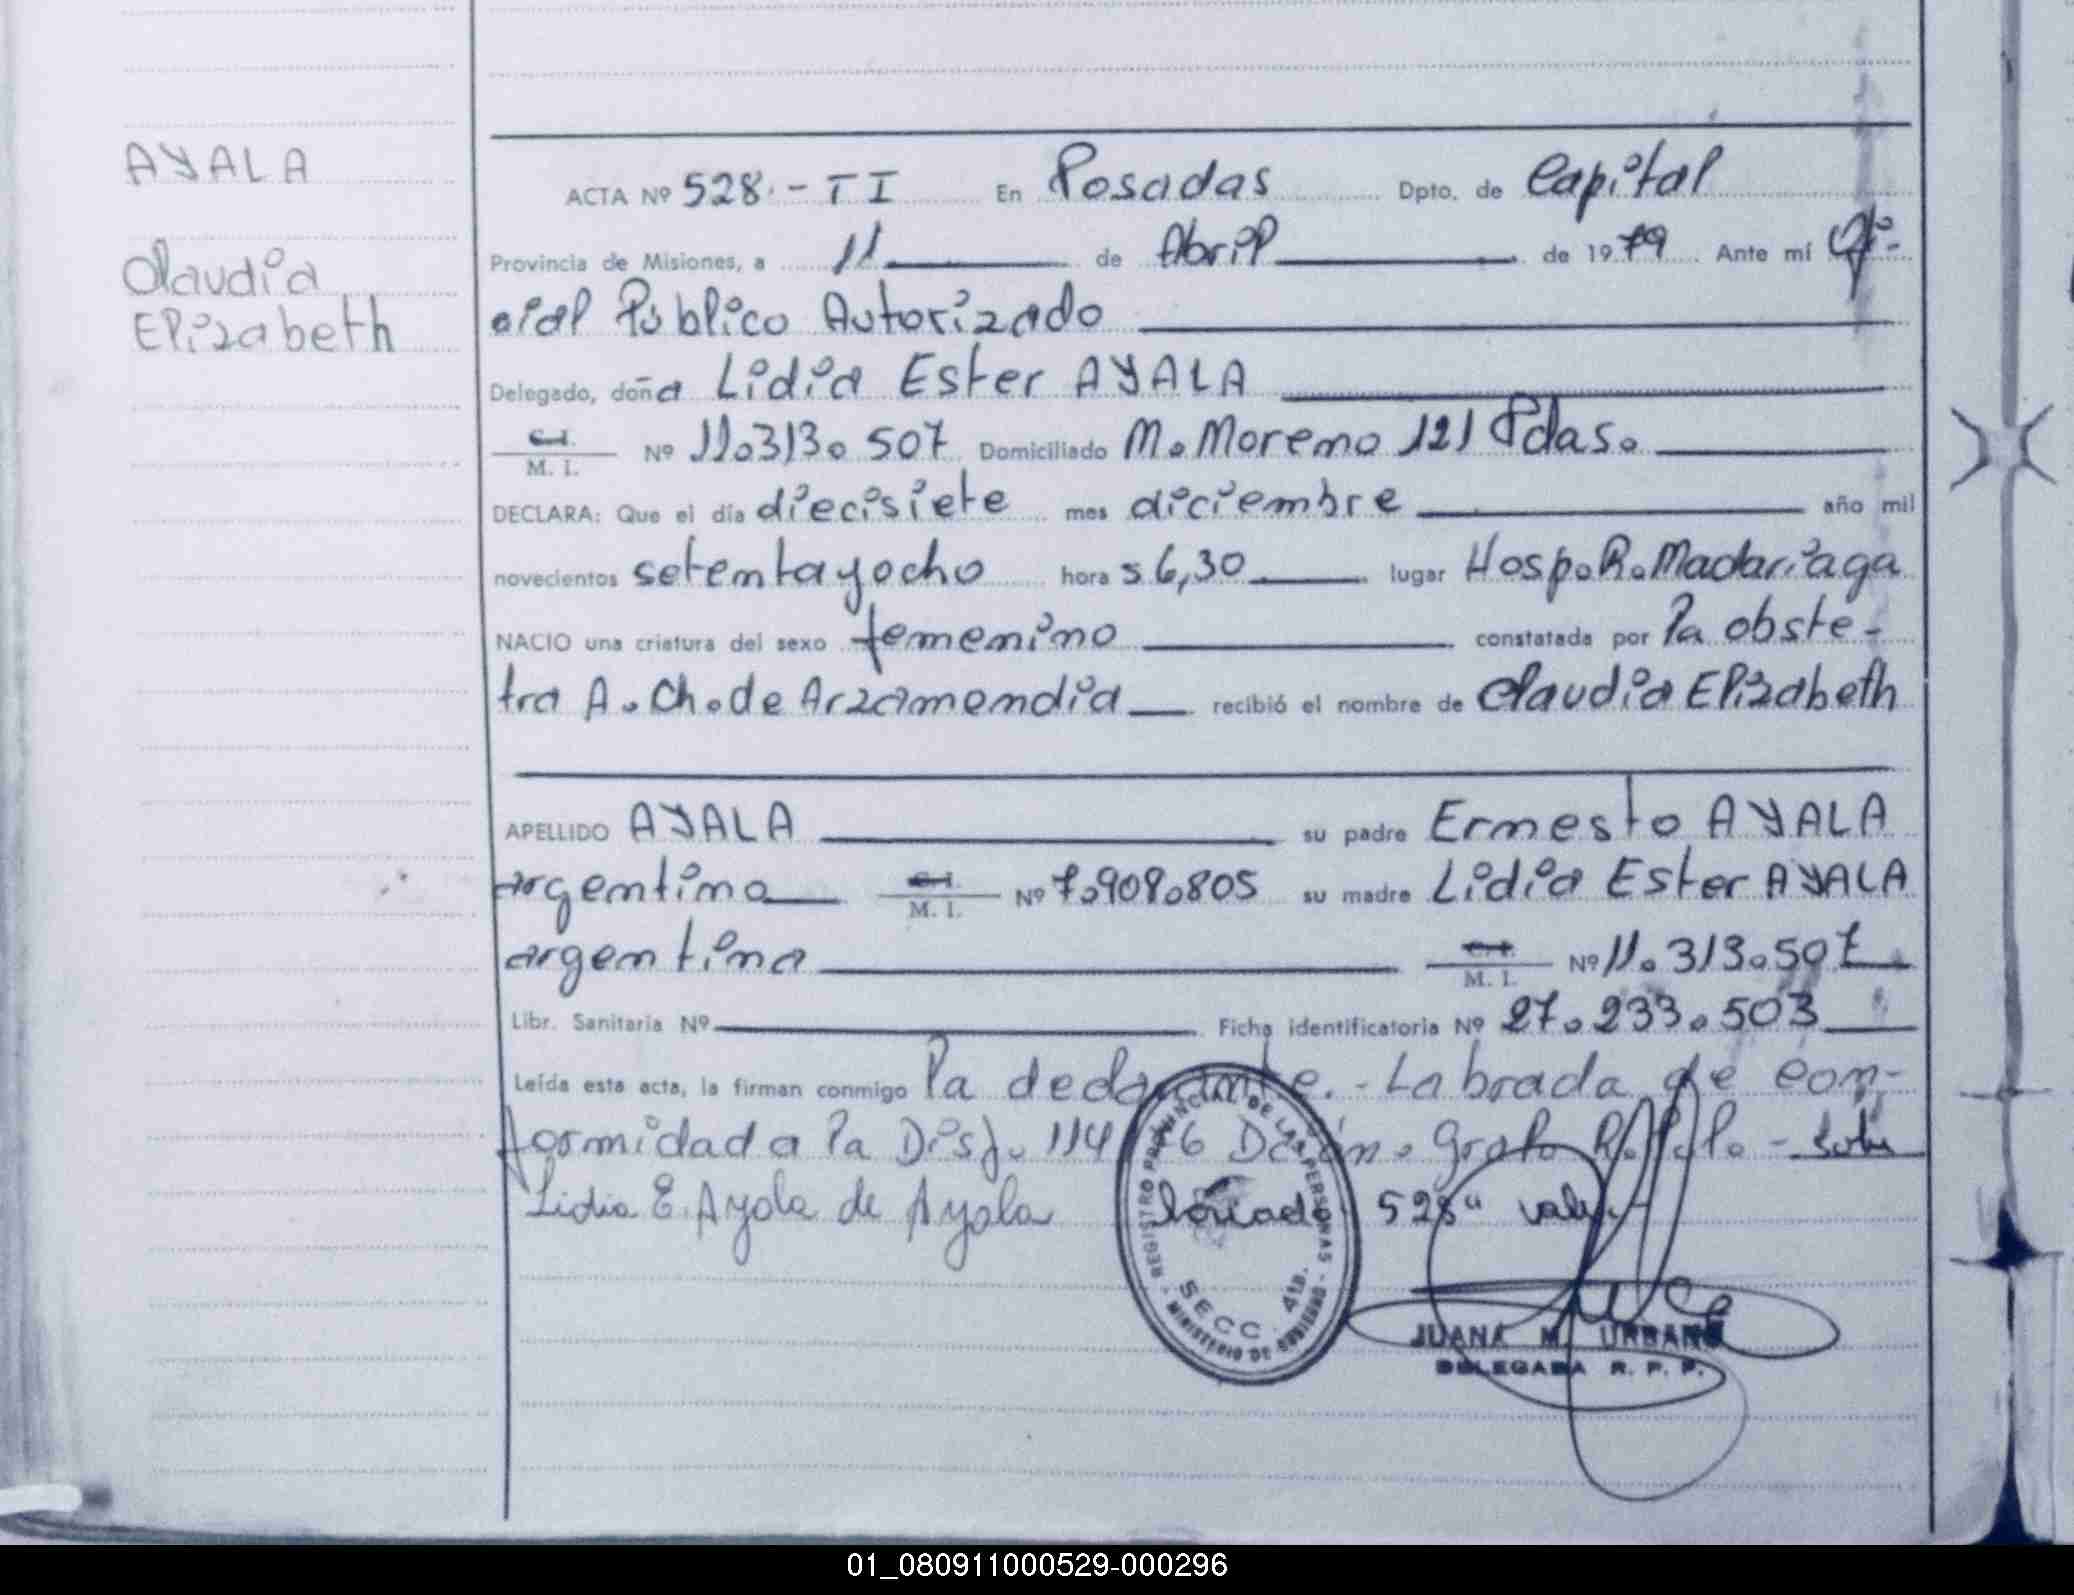 AYALA
Claudia
Elizabeth
ACTA Nº 528.- T I En Posadas Dpto. de Capital
Provincia de Misiones, a 11 de Abril de 1979 Ante mí Ofi-
cial Público Autorizado
Delegado, doña Lidia Ester AYALA
C.I. M. I. Nº 11.313.507 Domiciliado M. Moreno 121 Pdas.
DECLARA: Que el día diecisiete mes diciembre año mil
novecientos setentayocho hora s 6,30 lugar Hosp. R. Madariaga
NACIO una criatura del sexo femenino constatada por la obste-
tra A. Ch. de Arzamendia recibió el nombre de Claudia Elizabeth
APELLIDO AYALA su padre Ernesto AYALA
argentino C.I. M. I. Nº 7.908.805 su madre Lidia Ester AYALA
argentina C.I. M. I. Nº 11.313.507
Libr. Sanitaria Nº Ficha identificatoria Nº 27.233.503
Leída esta acta, la firman conmigo la declarante.- Labrada de con-
formidad a la Disp. 114 76 R.P.P. -
Lidia E. Ayala de Ayala 528"
REGISTRO PROVINCIAL DE LAS PERSONAS - MISIONES
SECC. 4ta.
JUANA M. URBANO
DELEGADA R. P. P.
01_080911000529-000296